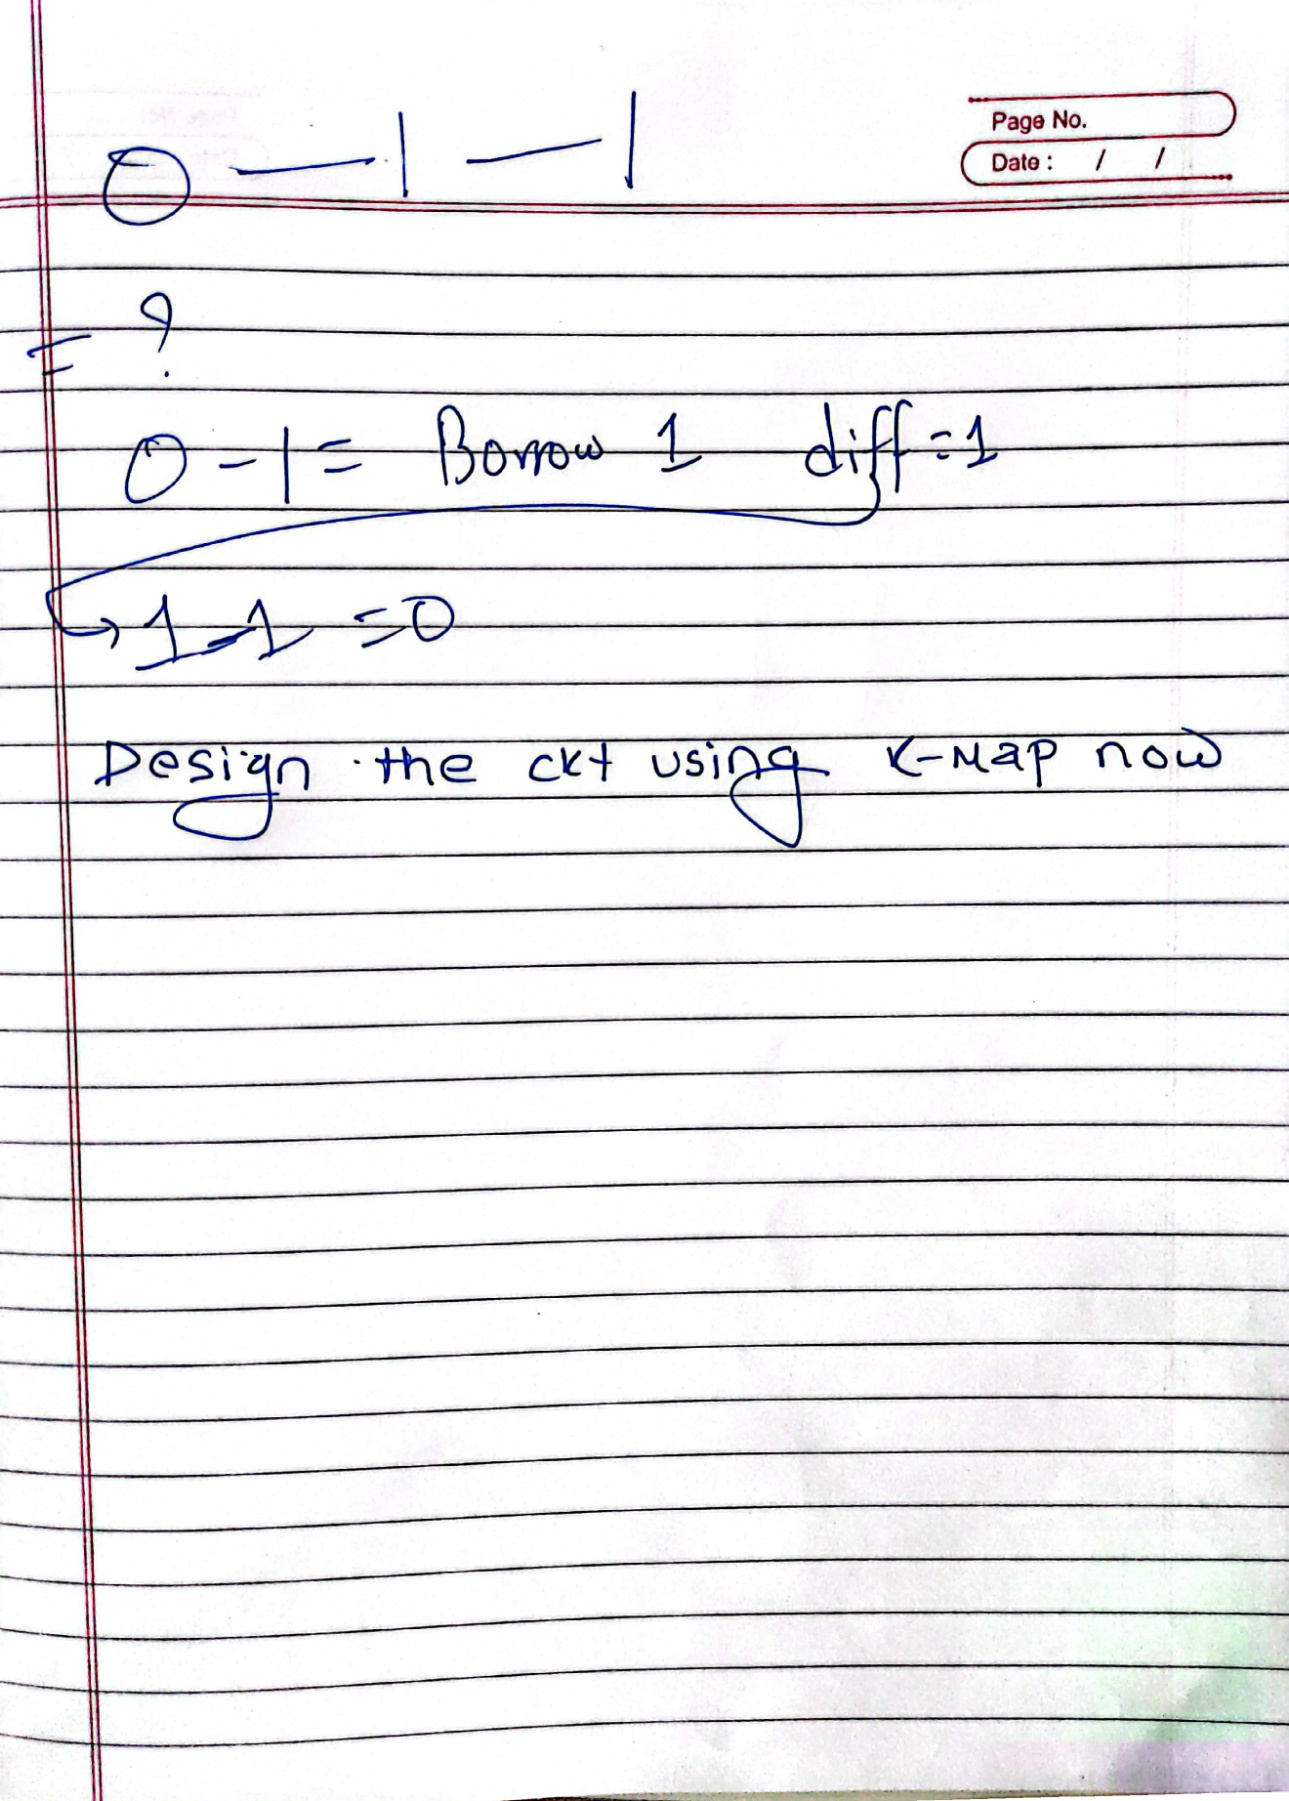 Page No.
Date : / /
0 — 1 — 1
= ?
0 - 1 = Borrow 1 diff = 1
→ 1 - 1 = 0
Design the ckt using K-Map now